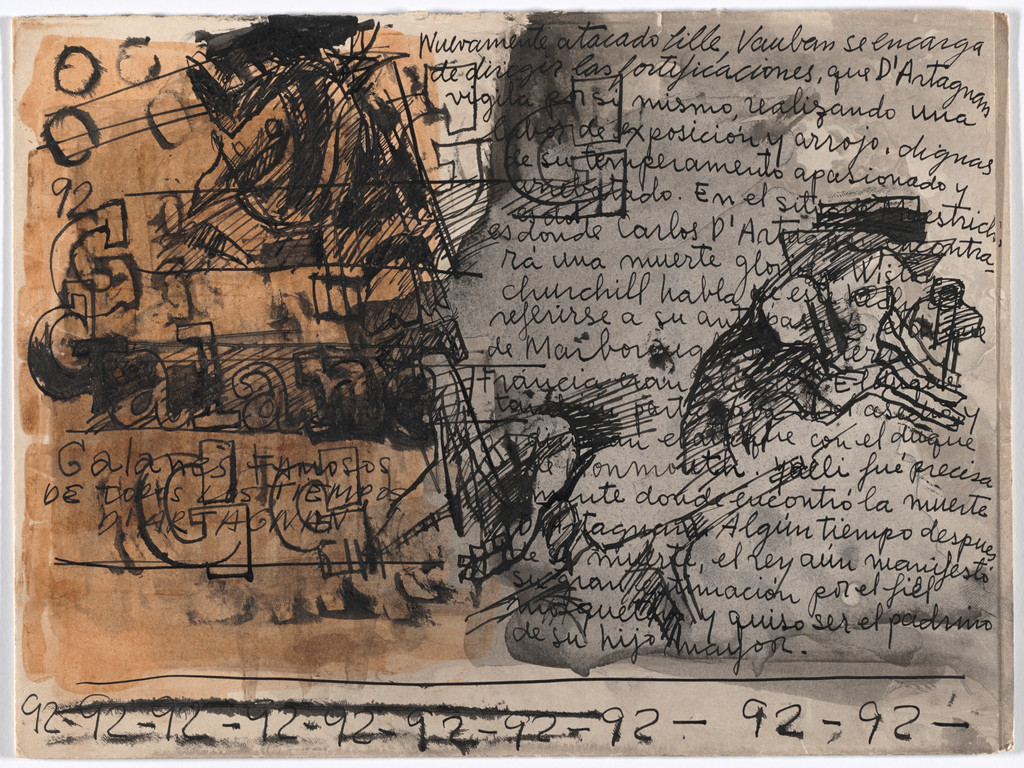 92
Galanes
Galanes FAMOSOS
DE TODOS LOS TIEMPOS
D'ARTAGNAN
Nuevamente atacado Lille, Vauban se encarga
de dirigir las fortificaciones, que D'Artagnan
vigila por si mismo, realizando una
labor de exposición y arrojo, dignas
de su temperamento apasionado y
arrebatado. En el sitio de Maestrich,
es donde Carlos D'Artagnan encontra-
rá una muerte gloriosa. Winston
churchill habla de este al
referirse a su antepasado el duque
de Marborough
Francia eran El duque
y
el ataque con el duque
de Monmouth. y alli fué precisa
mente donde encontró la muerte
D'Artagnan. Algún tiempo despues
de su muerte, el rey aún manifestó
su gran estimación por el fiel
mosquetero y quiso ser el padrino
de su hijo mayor.
92-92-92-92-92-92-92-92-92-92-